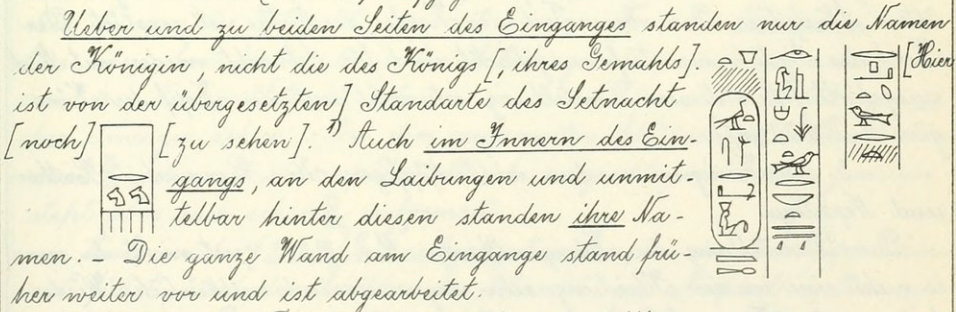 Ueber und zu beiden Seiten des Einganges standen nur die Namen
der Königin, nicht die des Königs [, ihres Gemahls]. [Hier
ist von der übergesetzten] Standarte des Setnacht
[noch] [zu sehen]. 1) Auch im Innern des Ein-
gangs, an den Laibungen und unmit-
telbar hinter diesen standen ihre Na-
men. – Die ganze Wand am Eingange stand frü-
her weiter vor und ist abgearbeitet.